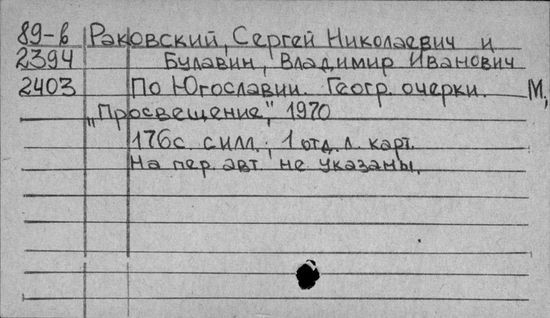 89-в Раковский, Сергей Николаевич и
2394 Булавин, Владимир Иванович
2403 По Югославии. Геогр. очерки. М,
"Просвещение", 1970
176с. с илл.; 1 отд. л. карт.
На пер. авт. не указаны.